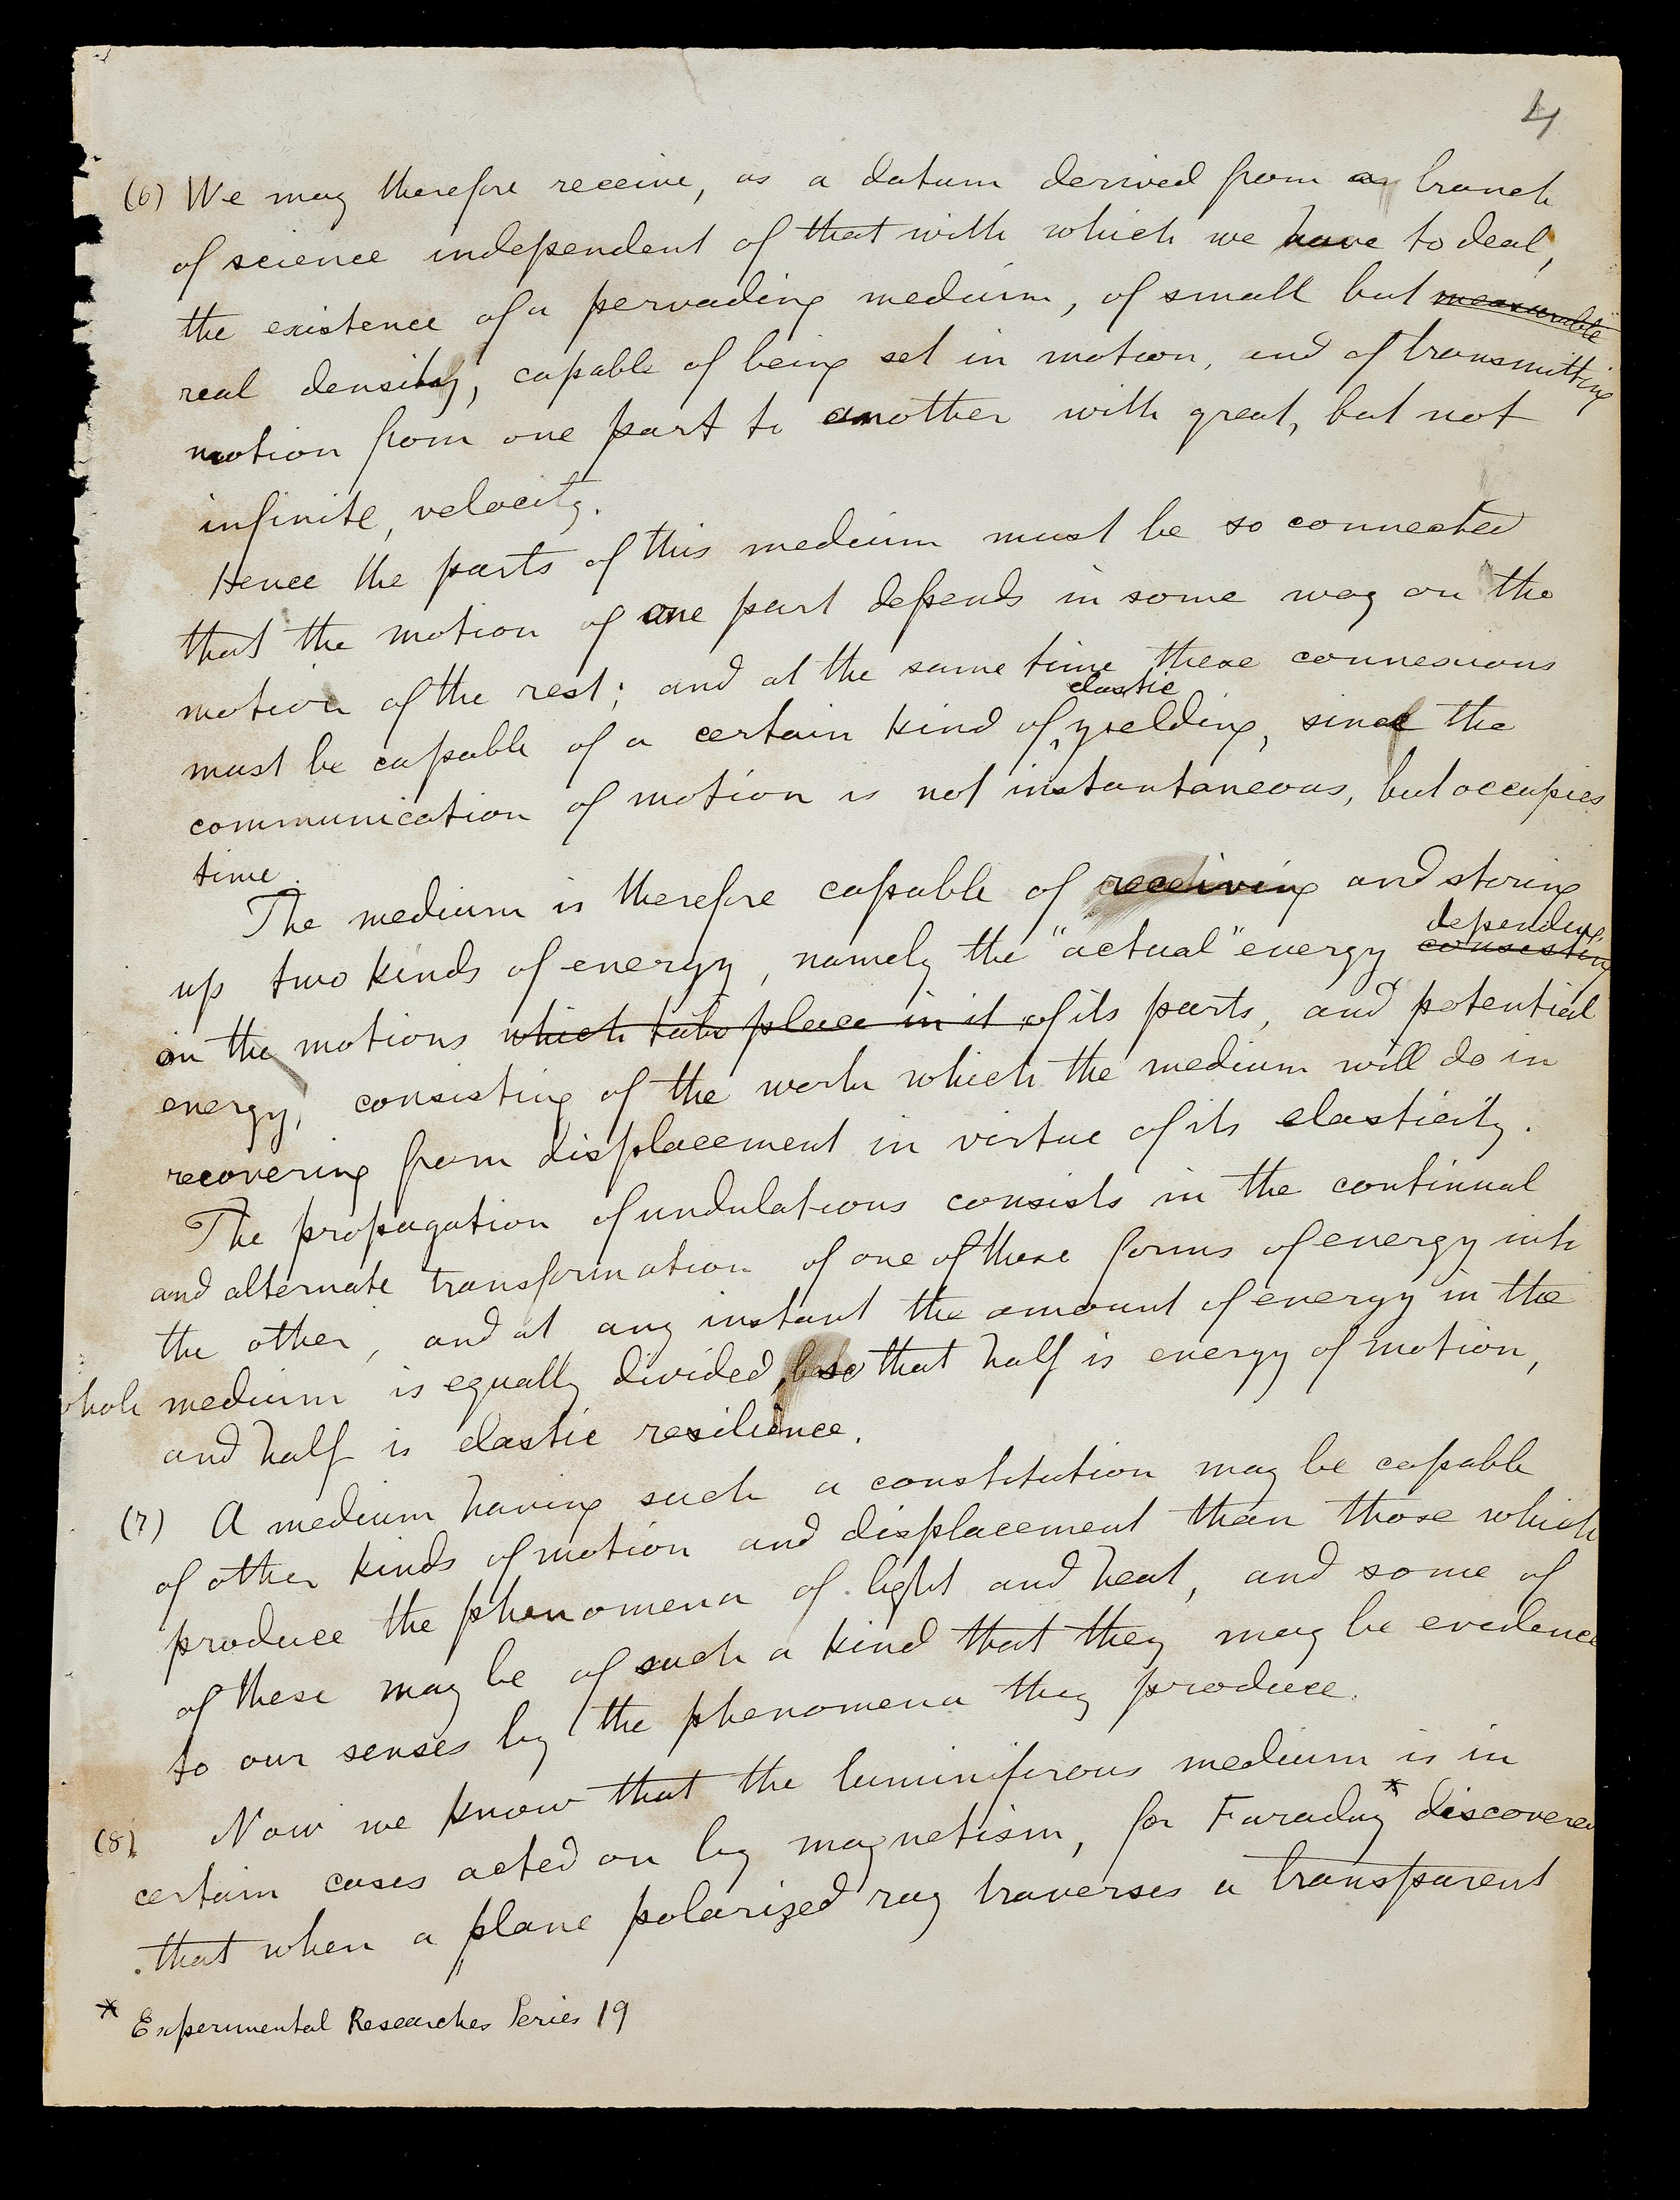 4
(6) We may therefore receive, as a datum derived from a branch
of science independent of that with which we have to deal,
the existence of a pervading medium, of small but measurable
real density, capable of being set in motion, and of transmitting
motion from one part to another with great, but not
infinite, velocity.
Hence the parts of this medium must be so connected
that the motion of one part depends in some way on the
motion of the rest; and at the same time these connexions
elastic
must be capable of a certain kind of yielding, since the
communication of motion is not instantaneous, but occupies
time.
The medium is therefore capable of receiving and storing
depending
up two kinds of energy, namely the "actual" energy consisting
on the motions which take place in it of its parts, and potential
energy, consisting of the work which the medium will do in
recovering from displacement in virtue of its elasticity.
The propagation of undulations consists in the continual
and alternate transformation of one of these forms of energy into
the other, and at any instant the amount of energy in the
whole medium is equally divided, so that half is energy of motion,
and half is elastic resilience.
(7) A medium having such a constitution may be capable
of other kinds of motion and displacement than those which
produce the phenomena of light and heat, and some of
of these may be of such a kind that they may be evidenced
to our senses by the phenomena they produce.
(8) Now we know that the luminiferous medium is in
certain cases acted on by magnetism, for Faraday* discovered
that when a plane polarized ray traverses a transparent
* Experimental Researches Series 19